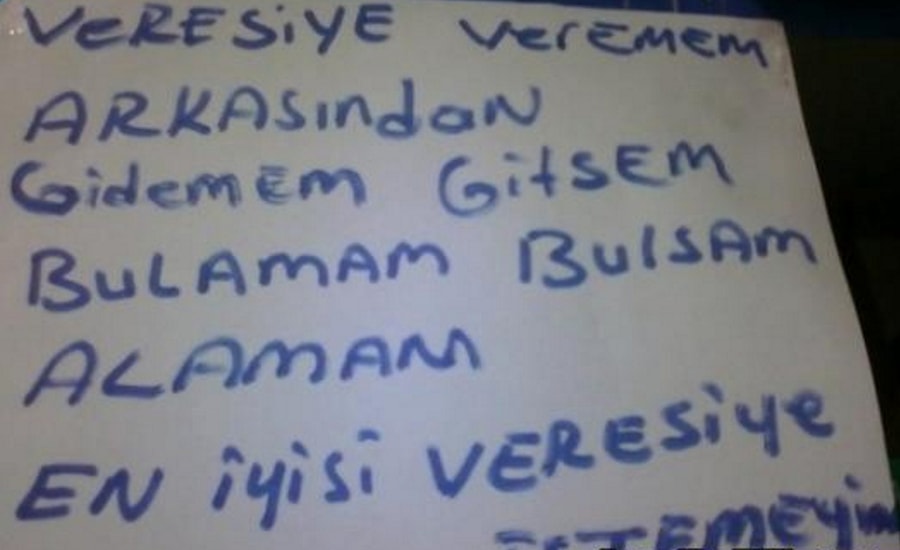 VERESiYE VerEMEM
ARKASındaN
GidemEm GitSEM
BULAMAM BulSAm
ALAMAM
EN iyisi VERESiye
iSTEMEYin